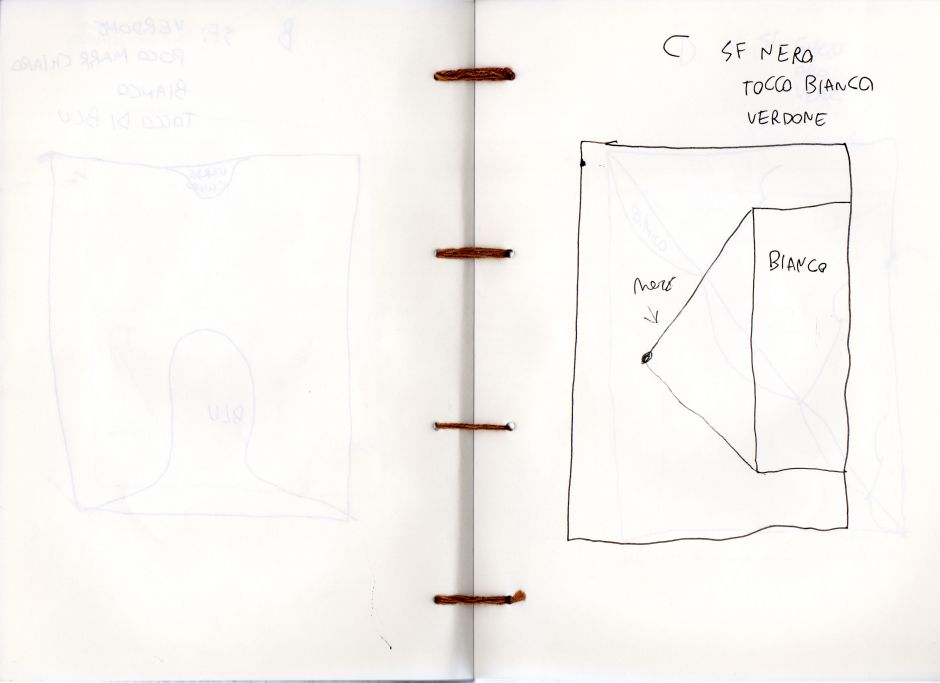 C SF NERO
TOCCO BIANCO
VERDONE
BIANCO
nero